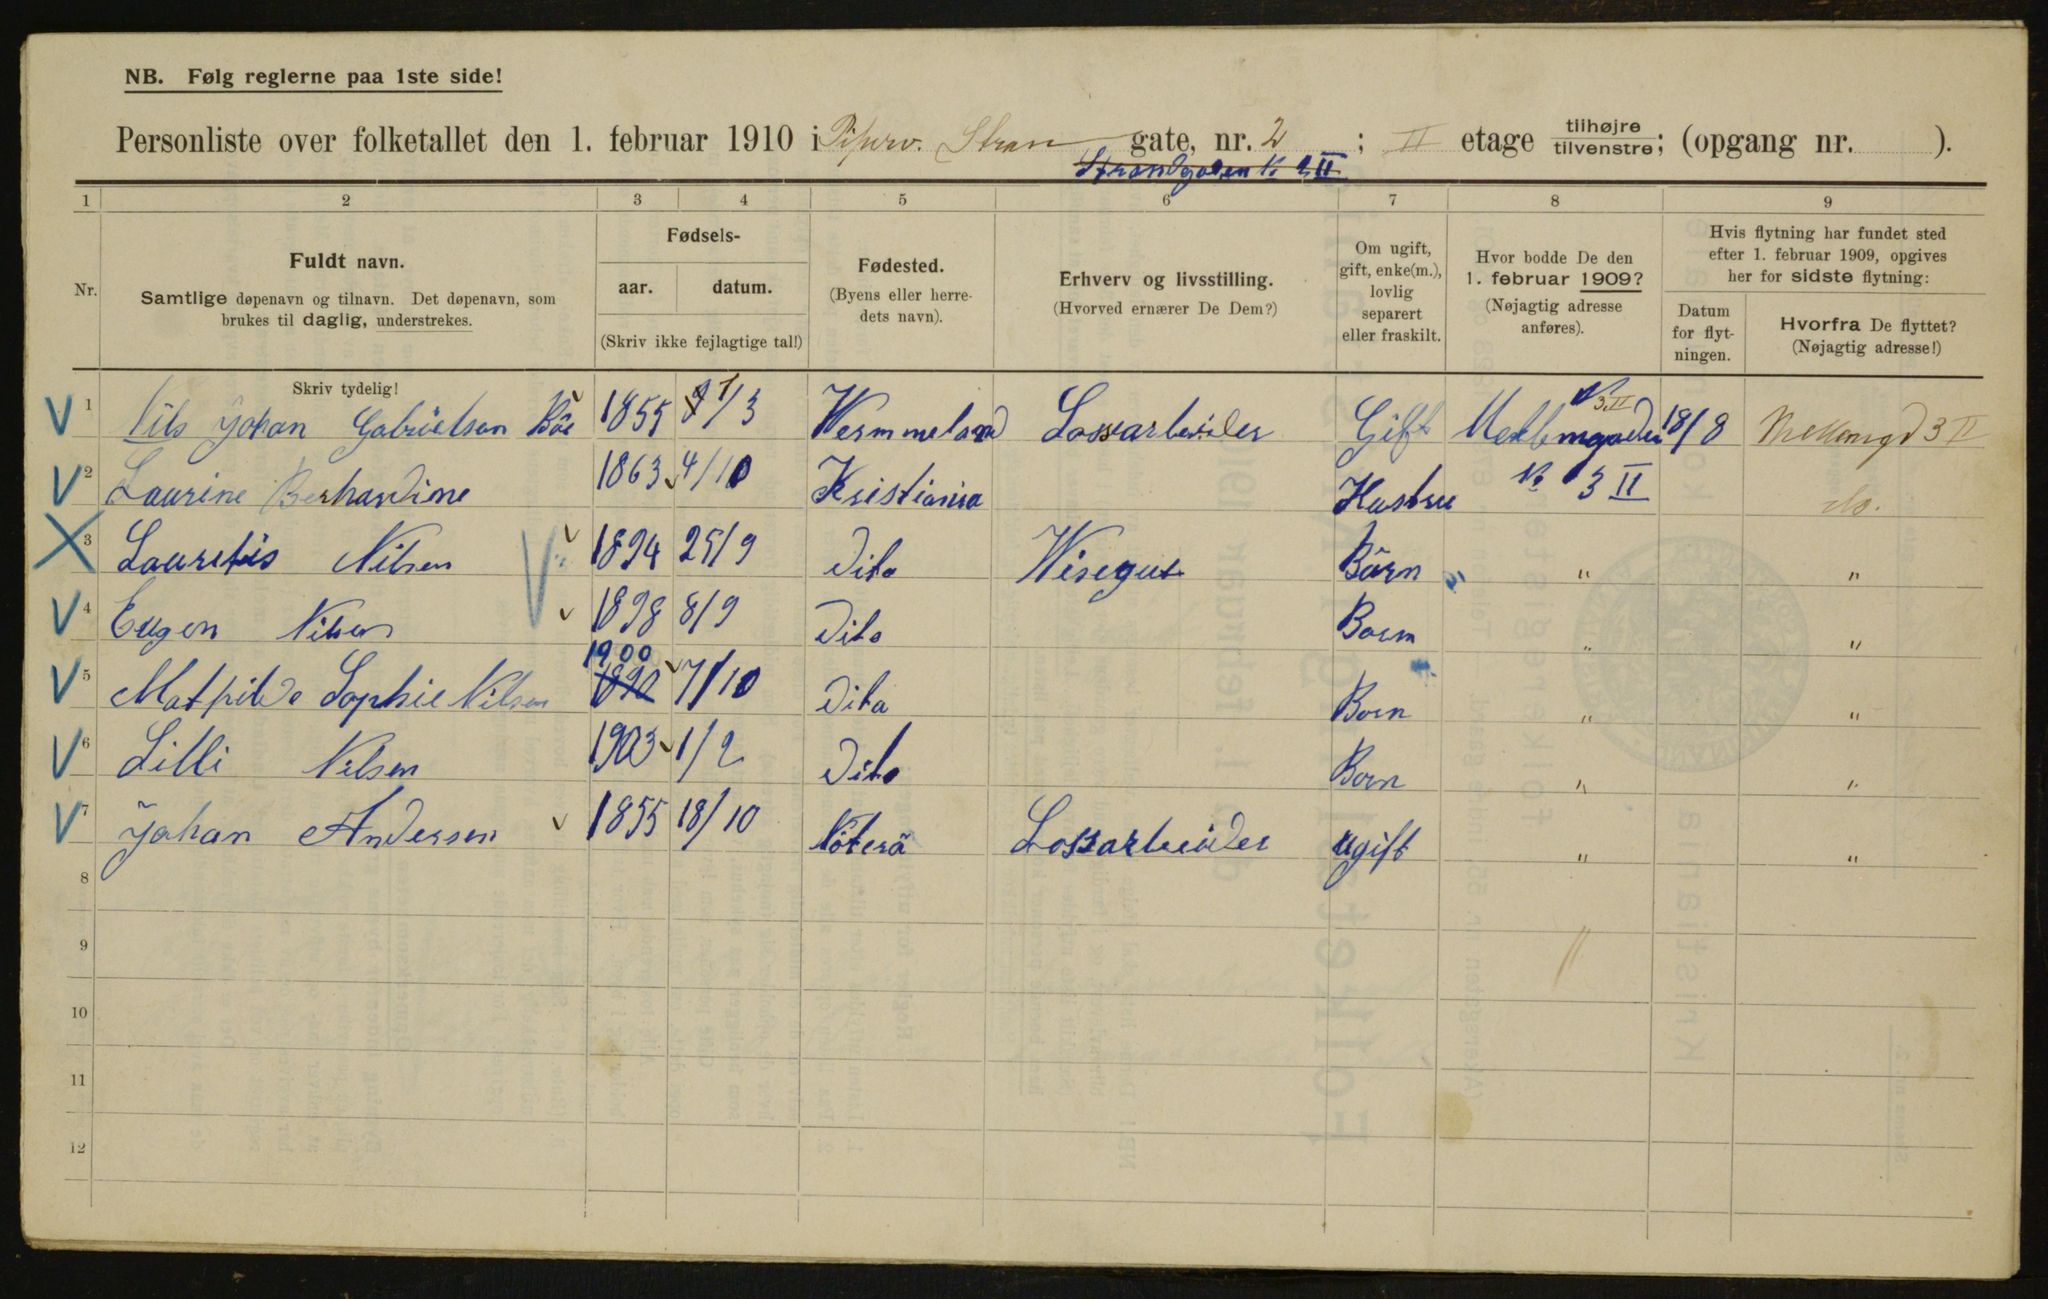 NB. Følg reglerne paa 1ste side!
Personliste over folketallet den 1. februar 1910 i Piperv. Stran gate, nr. 2 ; II etage tilhøjre tilvenstre; (opgang nr. ).
Strandgaden N. 2 II
1 2 3 4 5 6 7 8 9
Nr.
Fuldt navn.
Samtlige døpenavn og tilnavn. Det døpenavn, som
brukes til daglig, understrekes.
Fødsels-
aar. datum.
(Skriv ikke fejlagtige tal!)
Fødested.
(Byens eller herre-
dets navn).
Erhverv og livsstilling.
(Hvorved ernærer De Dem?)
Om ugift,
gift, enke(m.),
lovlig
separert
eller fraskilt.
Hvor bodde De den
1. februar 1909?
(Nøjagtig adresse
anføres).
Hvis flytning har fundet sted
efter 1. februar 1909, opgives
her for sidste flytning:
Datum
for flyt-
ningen.
Hvorfra De flyttet?
(Nøjagtig adresse!)
Skriv tydelig!
V 1 Nils Johan Gabrielsen 1855 /3 Wermmeland Lossarbeider Gift N. 3. II 18/8 3 II
V 2 Laurine Berhardine 1863 4/10 Kristiania Hustru N. 3 II do.
X 3 Lauretis Nilsen V 1894 25/9 Dito Wisegut Bärn " "
V 4 Eugen Nilsen 1898 8/9 Dito Born " "
1900
V 5 Mathilde Sophie Nilsen 1890 7/10 Dito Born " "
V 6 Lilli Nilsen 1903 1/2 Dito Born " "
V 7 Johan Andersen 1855 18/10 Nöterö Lossarbeider ugift " "
8
9
10
11
12